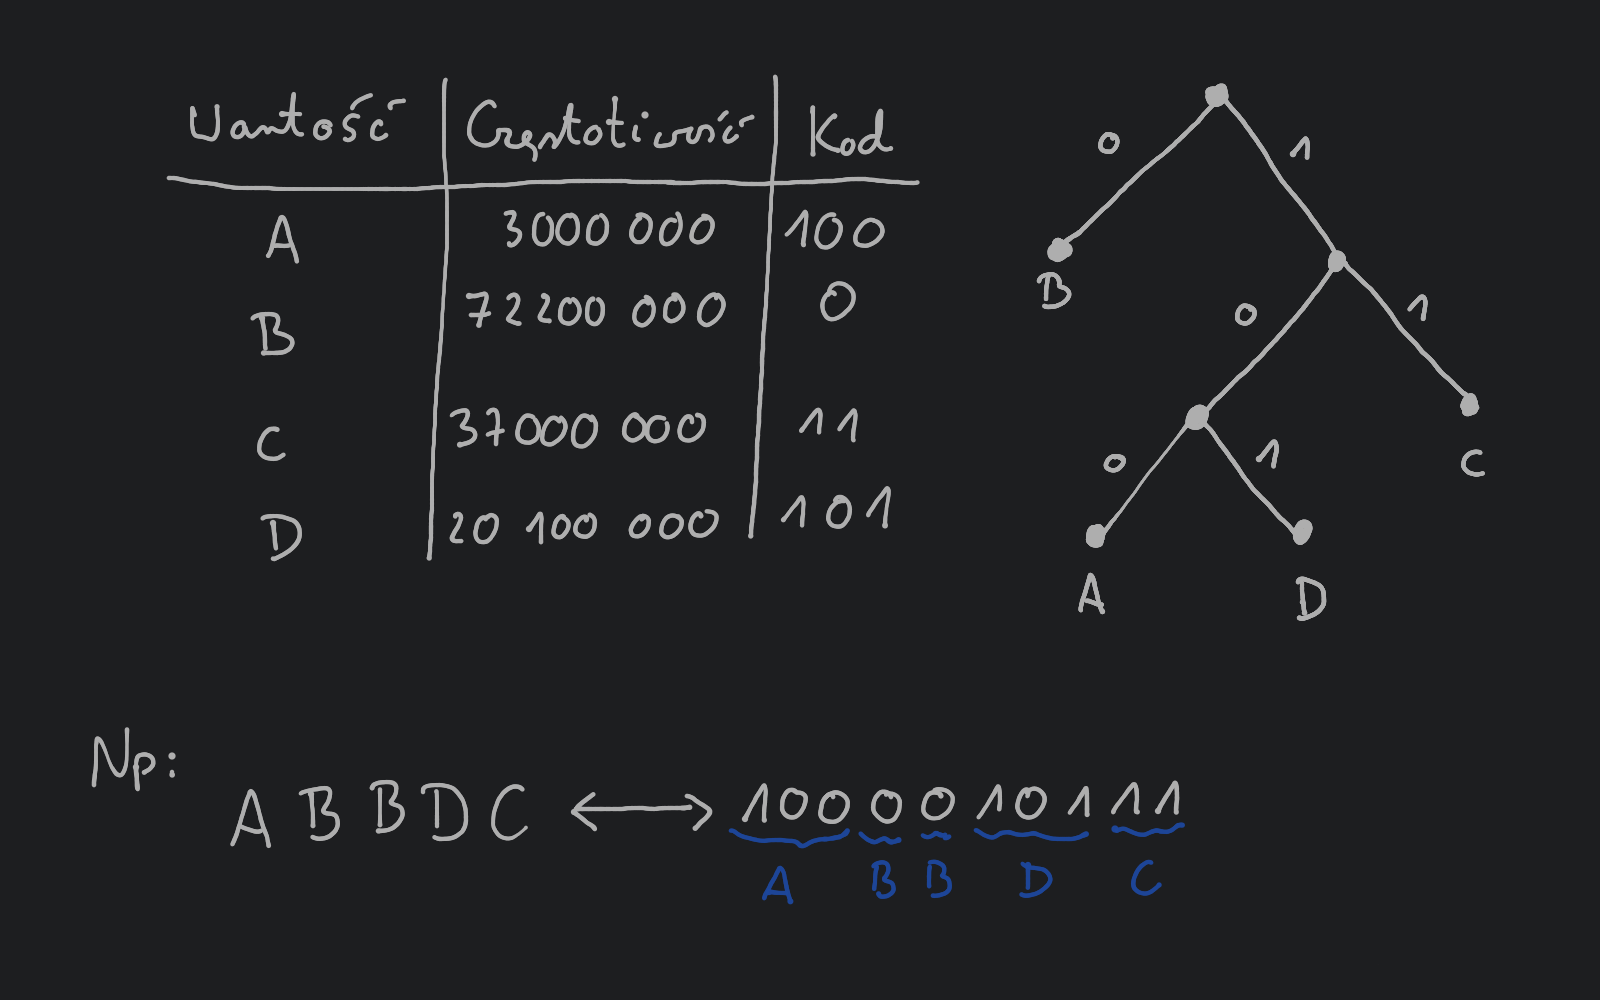 Wartość Częstotliwość Kod
A 3000 000 100
B 72200 000 0
C 37000 000 11
D 20 100 000 101
0 1
B
0 1
0 1
C
A D
Np:
A B B D C ↔ 100 0 0 101 11
A B B D C